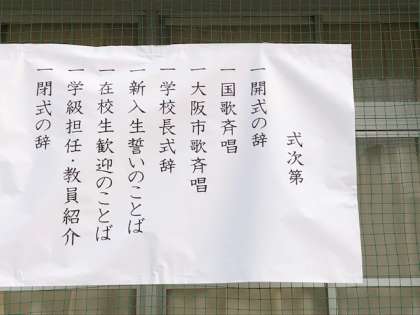 式次第
一 開式の辞
一 国歌斉唱
一 大阪市歌斉唱
一 学校長式辞
一 新入生誓いのことば
一 在校生歓迎のことば
一 学級担任・教員紹介
一 閉式の辞